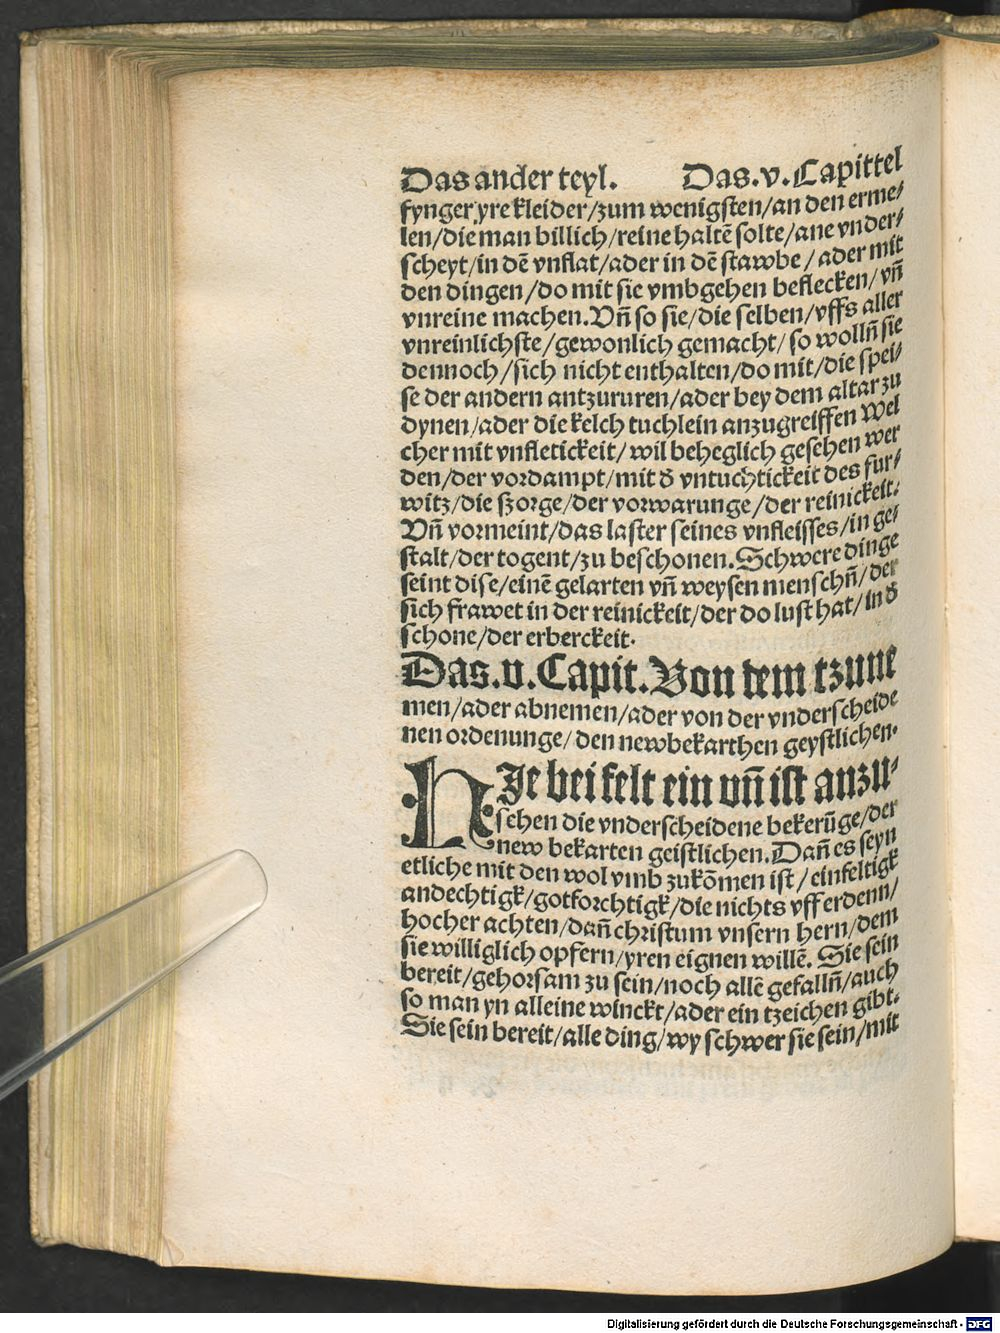 Das ander teyl. Das.v.Capittel
fynger/yre kleider/zum wenigsten/an den erme/
len/die man billich/reine haltē solte/ane vnder/
scheyt/in dē vnflat/ader in dē stawbe/ader mit
den dingen/do mit sie vmbgehen beflecken/vn̄
vnreine machen.Vn̄ so sie/die selben/vffs aller
vnreinlichste/gewonlich gemacht/so wolln̄ sie
dennoch/sich nicht enthalten/do mit/die spei/
se der andern antzururen/ader bey dem altar zu
dynen/ader die kelch tuchlein anzugreiffen Wel
cher mit vnfletickeit/wil beheglich gesehen wer
den/der vordampt/mit d̄ vntuchtickeit des fur/
witz/die ßorge/der vorwarunge/der reinickeit.
Vn̄ vormeint/das laster seines vnfleisses/in ge/
stalt/der togent/zu beschonen.Schwere dinge
seint dise/einē gelarten vn̄ weysen menschn̄/der
sich frawet in der reinickeit/der do lust hat/in d̄
schone/der erberckeit.
Das.v.Capit.Von dem tzune
men/ader abnemen/ader von der vnderscheide
nen ordenunge/den newbekarthen geystlichen.
HIe bei felt ein vn̄ ist anzu/
sehen die vnderscheidene bekerūge/der
new bekarten geistlichen.Dan̄ es seyn
etliche mit den wol vmb zukōmen ist/einfeltigk
andechtigk/gotforchtigk/die nichts vff erdenn/
hocher achten/dan̄ christum vnsern hern/dem
sie williglich opfern/yren eignen willē. Sie sein
bereit/gehorsam zu sein/noch allē gefalln̄/auch
so man yn alleine winckt/ader ein tzeichen gibt.
Sie sein bereit/alle ding/wy schwer sie sein/mit
Digitalisierung gefördert durch die Deutsche Forschungsgemeinschaft - DFG